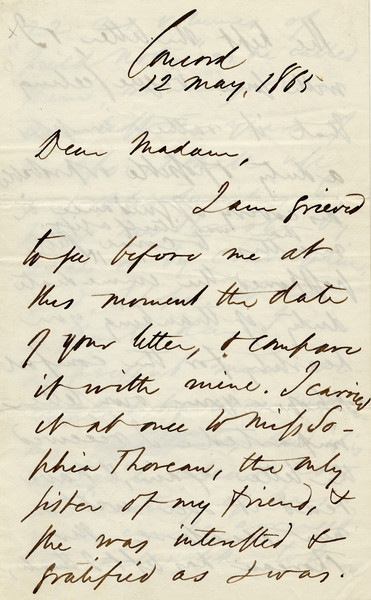 Concord
12 May, 1865
Dear Madam,
I am grieved
to see before me at
this moment the date
of your letter, & compare
it with mine. I carried
it at once to Miss So-
phia Thoreau, the only
sister of my friend, &
she was interested &
gratified as I was.